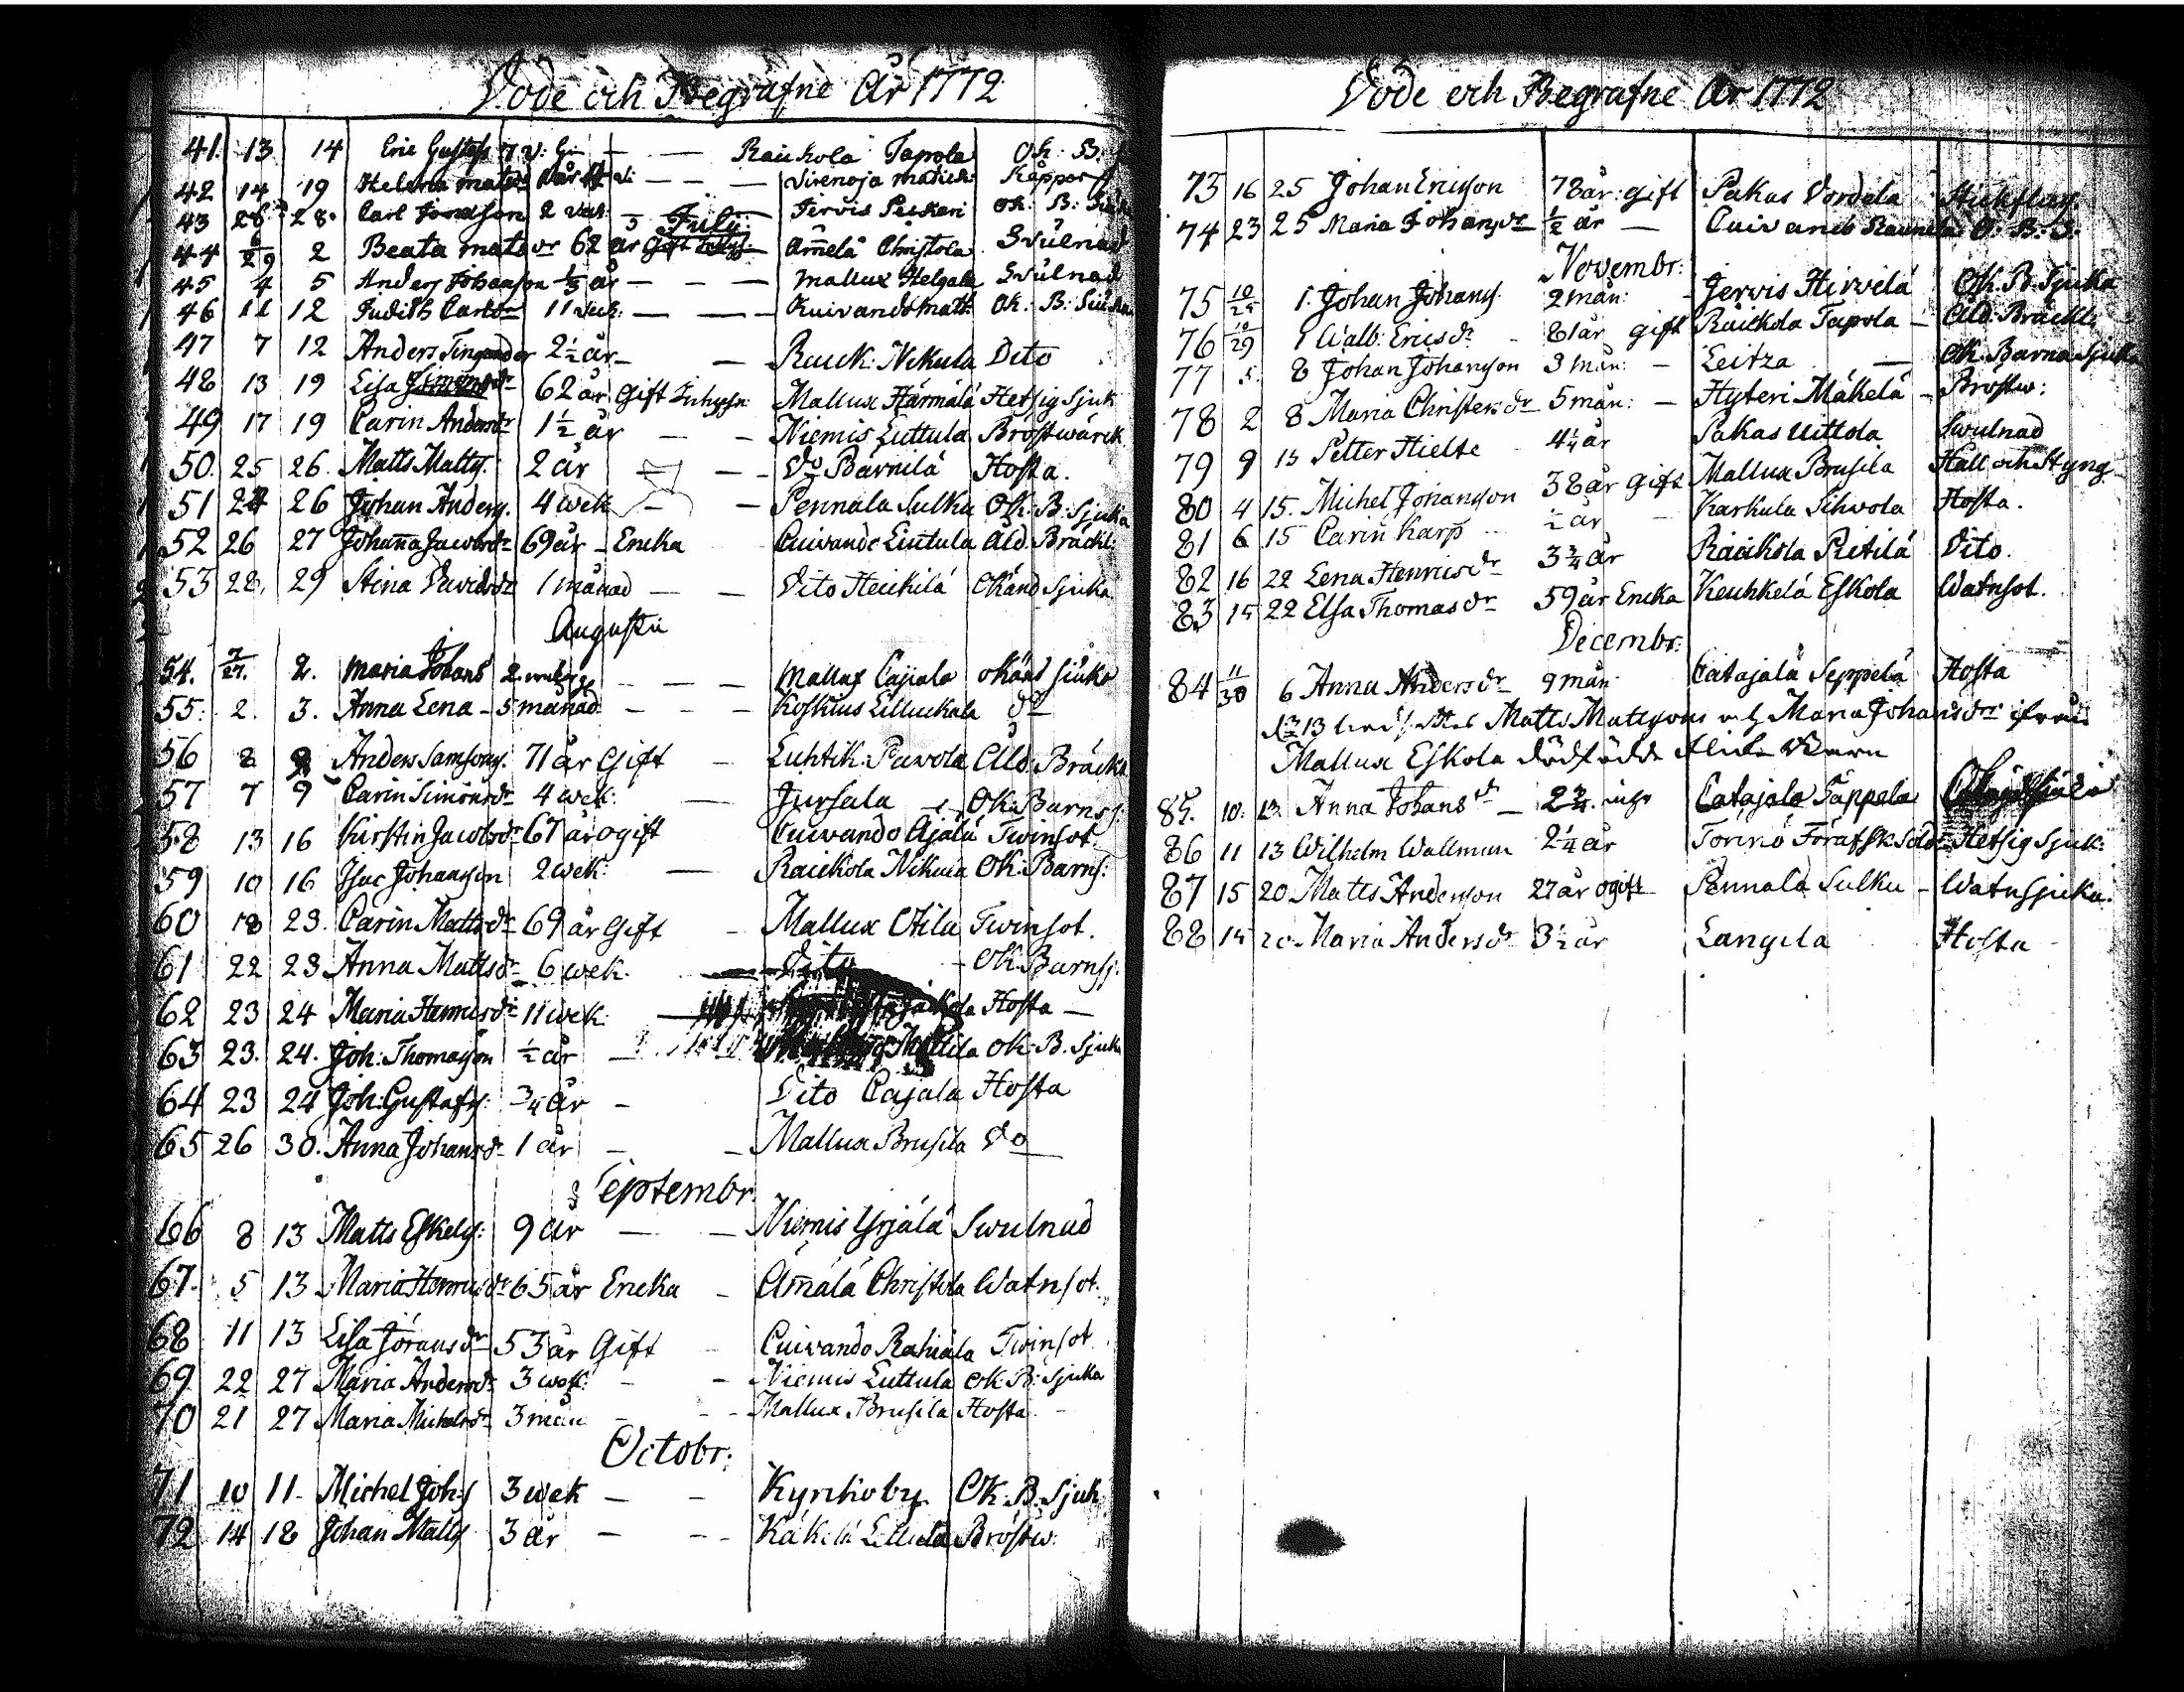 Döde och Begrafne År 1772
41. 13 14 Eric Gustafs 7 v: G: — — Raukola Tapola Ok: B.
42 14 19 Helena mats — — —
43 28 28. Carl 2 — — Jervis Peckari Ok: B:
July
44 6/29 2 Beata mats dr 62 år Gift Amelä Christola Svulnad
45 4 5 Anders Johanson ½ år — — — Mallux Helgala Svulnad
46 11 12 Judith Carlsdr 11 — — — Kuivando Matt: Ok: B: Siuka
47 7 12 Anders 2½ år — — Rauck: Nikula Dito
48 13 19 Lisa 62 år Gift Inhyse Mallux Härmälä Hetsig Sjuk
49 17 19 Carin Andersdr 1½ år — — Niemis Luttula Bröstwärck
50. 25 26. Matts Matts. 2 år — Do Barnilä Hosta.
51 24 26 Johan Anders. 4 wek — — Pennala Sulku Ok: B: Sjuka
52 26 27 Johanna Jacobsdr 69 år — Encka Cuivando Luttula Åld. Bräckl:
53 28. 29 Stina Davidsdr 1 månad — — Dito Heickilä Okänd Sjuka
Augusti
54. 7/27. 2. Maria Johans 2. — — — Mallux Cajiala okänd siuka
55. 2. 3. Anna Lena — 5 månad — — — Koskius Lilluckala do
56 8 9 Anders Samsons. 71 år Gift — Luhtik: Pavola Åld. Bräckl
57 7 9 Carin Simonsdr 4 wek: — Jursala — Ok: Barnsj:
58 13 16 Kirstin Jacobsdr 67 år ogift Cuivando Ajälä Twinsot.
59 10 16 Isac Johanson 2 wek: — Raickola Nikula Ok: Barns:
60 18 23. Carin Mattsdr 69 år Gift — Mallux Otila Twinsot.
61 22 23 Anna Mattsdr 6 wek. — Dito — Ok: Barnsj.
62 23 24 Maria Henricsdr 11 wek: Hosta —
63 23. 24. Joh: Thomason ½ år — Ok: B. Sjuka
64 23 24 Joh: Gustafs: ¾ år — Dito Cajala Hosta
65 26 30. Anna Johansdr 1 år — — Mallux Brusila Do
Septembr.
66 8 13 Matts Eskels: 9 år — — Niemis Yrjälä Swulnad
67. 5 13 Maria Henricsdr 65 år Encka — Amälä Christola Watnsot.
68 11 13 Lisa Jöransdr 53 år Gift — Cuivando Rahiala Twinsot
69 22 27 Maria Andersdr 3 wek: — — Niemis Luttula Ok: B: Sjuka
70 21 27 Maria Michelsdr 3 mån — — Mallux Brusila Hosta —
Octobr:
71 10 11 Michel Johs 3 wek — — Kyrckoby Ok: B. Sjuk
72 14 18 Johan Matts 3 år — — Bröstw:
Döde och Begrafne År 1772
73 16 25 Johan Ericson 78 år: gift Pakas Vordela Stickflug.
74 23 25 Maria Johansdr ½ år — Cuivando O: B: S:
Novembr:
75 10/25 1. Johan Johans. 2 mån: — Jervis Hirvelä Ok: B. Sjuka
76 10/29 1 Walb: Ericsdr 81 år gift Raickola Tapola — Åld. Bräckl:
77 5. 8 Johan Johanson 3 mån: — Leitza — Ok Barna Sjuka
78 2 8 Maria Christersdr 5 mån: — Hyteri Mäkelä — Bröstw:
79 9 15 Petter Hielte 4¼ år Pakas Uittola Swulnad
80 4 15. Michel Johanson 38 år gift Mallux Brusila Håll och Styng
81 6 15 Carin Karp — ½ år — Karkula Silvola Hosta.
82 16 22 Lena Henricsdr 3¾ år Raickola Pietilä Dito.
83 15 22 Elsa Thomasdr 59 år Encka Keuhkelä Eskola Watnsot.
Decembr:
84 11/30 6 Anna Andersdr 9 mån Catajala Seppelä Hosta
Matts Matsons Maria Johansdr ifrån
Mallux Eskola dödfödde
85. 10. 13. Anna Johansdr — 2¾ Catajala Tappela
86 11 13 Wilhelm Wallman 2¼ år Hetsig Sjuk:
87 15 20 Matts Anderson 27 år ogift Pennala Sulku — Watnsjuka.
88 15 20 Maria Andersdr 3½ år Langila Hosta